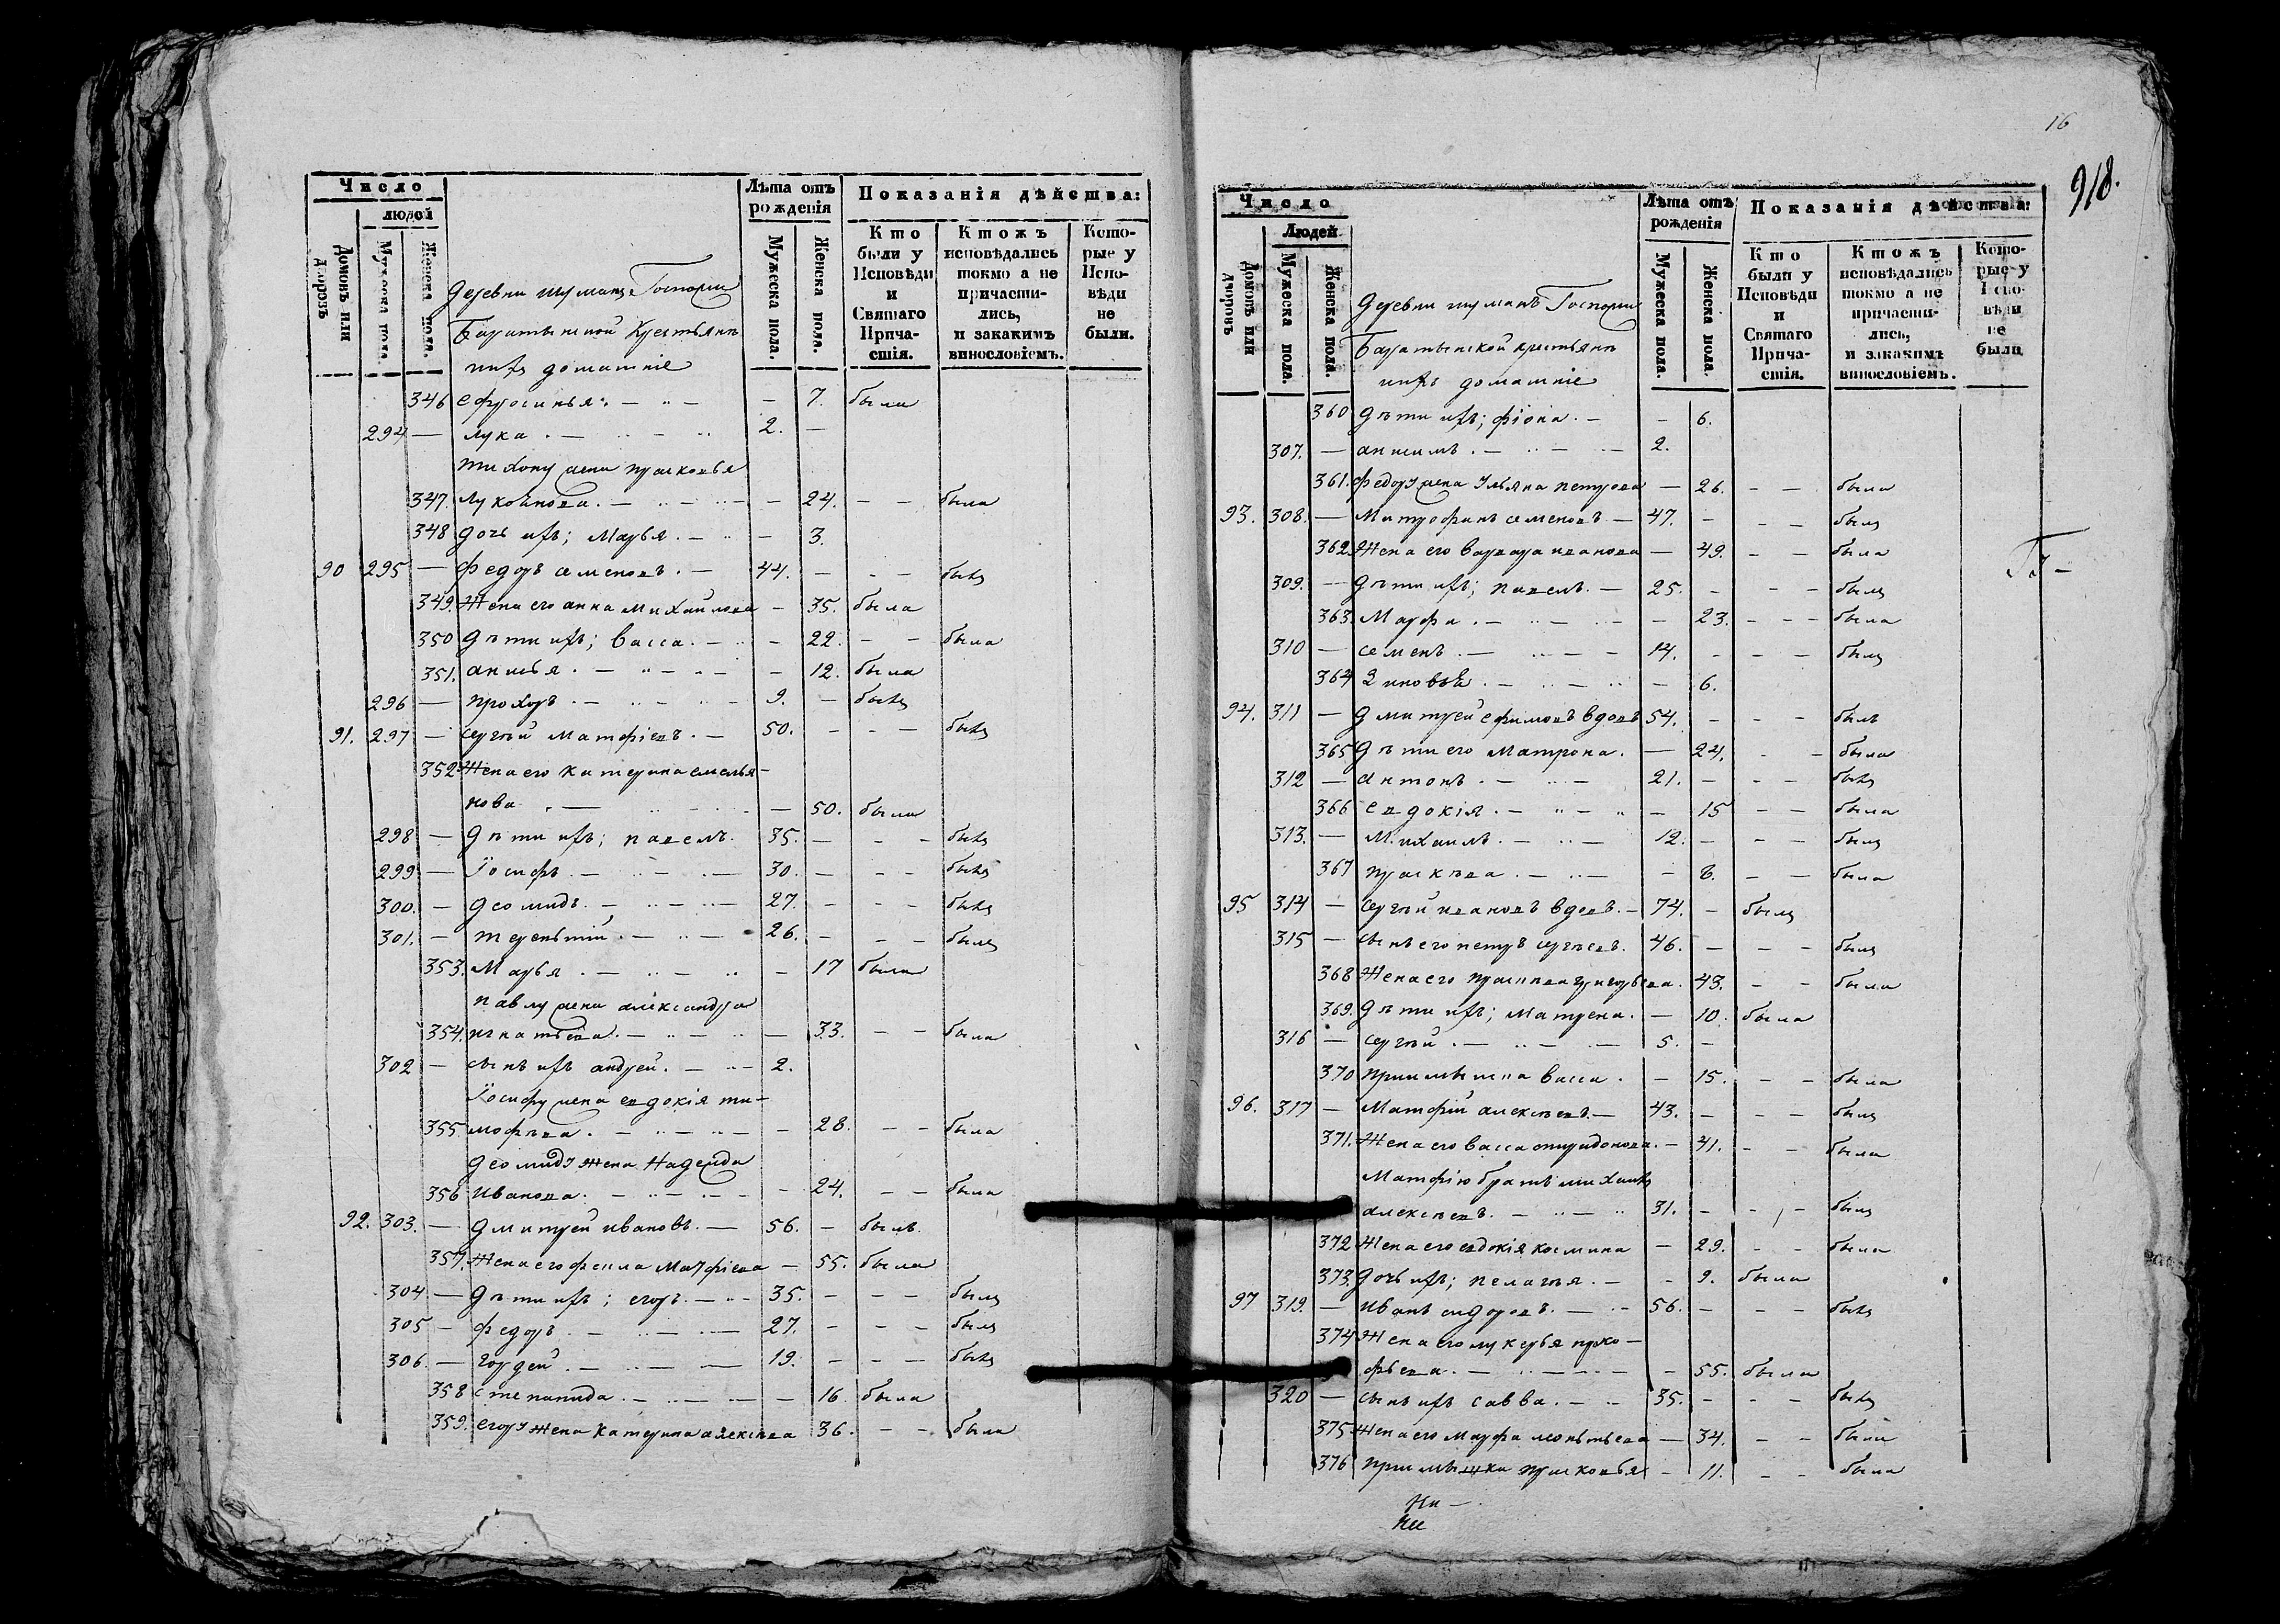 Число
людей
Домовъ или дворовъ
Мужеска пола.
Женска пола.
Лѣта отъ рожденія
Мужеска пола.
Женска пола.
Показанія дѣйства:
Кто были у Исповѣди и Святаго Прича-стія.
Ктожъ исповѣдались токмо а не причасти-лись, и закакимъ винословіемъ.
Кото-рые у Испо-вѣди не были.
деревни Госпожи
крестьянъ
ихъ домашніе
346 ефросинья . — — 7. была
294 — лука . — 2. —
тихону жена прасковья
347. лукоянова . — — 24. — — была
348 дочь ихъ; марья . — — 3.
90 295 — федоръ семеновъ . — 44. — — — былъ
349. Жена его анна михайлова — 35. была
350 дѣти ихъ; васса . — — 22. — — была
351. анисья . — — 12. была
296 — прохоръ . — 9. — былъ
91. 297 — сергѣй матфіевъ . — 50. — — — былъ
352 Жена его катерина емелья-
нова . — — 50. была
298 — дѣти ихъ; павелъ. 35. — — — былъ
299 — Іосифъ . — 30. — — — былъ
300. — деомидъ . — 27. — — — былъ
301. — терентій . — 26. — — — былъ
353. Марья . — — 17 была
павлу жена александра
354. игнатьева . — — 33. — — была
302 — сынъ ихъ андрей . — 2.
Іосифу жена евдокія ти-
355 мофѣева . — — 28. — — была
деомиду жена Надежда
356 Иванова . — — 24. — — была
92. 303. — дмитрей ивановъ . — 56. — былъ
357. Жена его фекла Матфіева — 55. была
304 — дѣти ихъ; егоръ . — 35. — — — былъ
305 — федоръ . — 27. — — — былъ
306. — гордей . — 19. — — — былъ
358 степанида . — — 16. была
359. егору жена катерина алексѣева 36. — — была
16
918.
Число
Людей
Домовъ или дворовъ
Мужеска пола.
Женска пола.
Лѣта отъ рожденія
Мужеска пола.
Женска пола.
Показанія дѣйства:
Кто были у Исповѣди и Святаго Прича-стія.
Ктожъ исповѣдались токмо а не причасти-лись, и закакимъ винословіемъ.
Кото-рые у Испо-вѣди не были
деревни Госпожи
крестьянъ
ихъ домашніе
360 дѣти ихъ; фіона . — — 6.
307. — анисимъ . — 2.
361. федору жена Ульяна петрова — 26. — — была
93. 308. — Митрофанъ семеновъ — 47. — — — былъ
362. Жена его варвара иванова — 49. — — была
309. — дѣти ихъ; павелъ . — 25. — — — былъ
363. Марфа . — — 23. — — — была
310 — семенъ . — 14. — — — былъ
364 Зиновья . — — 6.
94. 311 — дмитрей ефимовъ вдовъ 54. — — — былъ
365 дѣти его матрона . — 24. — — была
312 — антонъ . — 21. — — — былъ
366 евдокія . — — 15 — — была
313. — михаилъ . — 12. — — — былъ
367 — 8. — — была
95 314 — сергѣй ивановъ вдовъ . — 74. — былъ
315 — сынъ его петръ сергѣевъ . 46. — — — былъ
368 Жена его григорьева . 43. — — была
369. дѣти ихъ; матрена . — 10. была
316 — сергѣй . — 5. —
370 васса . — 15. — — была
96. 317 — Матфій алексѣевъ . — 43. — — — былъ
371. Жена его васса спиридонова . — 41. — — была
Матфію братъ михаилъ
алексѣевъ . — 31. — — — былъ
372 Жена его евдокія космина — 29. — — была
373. дочь ихъ; пелагѣя . — — 9. была
97 319. — Иванъ сидоровъ . — 56. — — — былъ
374 Жена его лукерья проко-
фьева . — — 55. была
320 — сынъ ихъ савва . — 35. — — — былъ
375 Жена его марфа леонтьева — 34. — — была
376 прасковья — 11. — — была